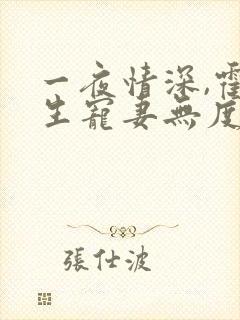 一夜情深,霍
生寵妻無度
張仕波